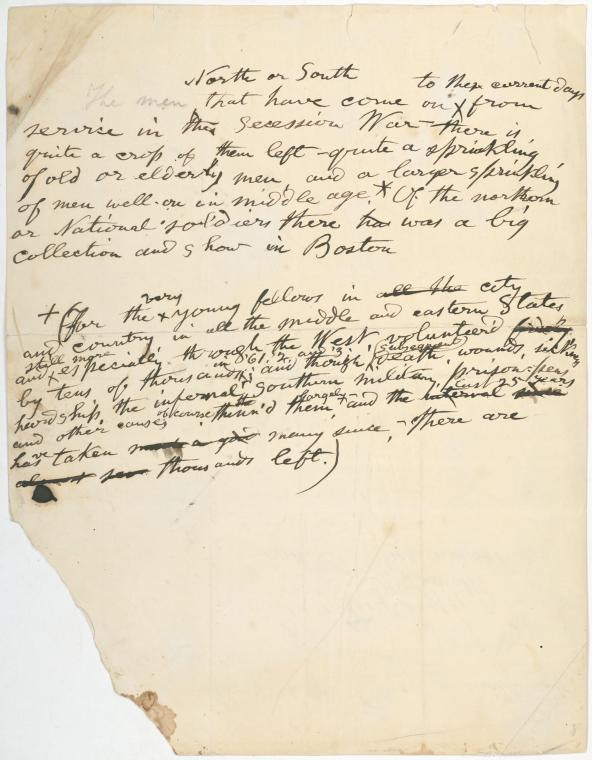 North or South to these current days
The men that have come on from
service in the Secession War – there is
quite a crop of them left – quite a sprinkling
of old or elderly men, and a larger sprinkling
of men well-on in middle age. * Of the northern
or National soldiers there has was a big
collection and show in Boston
very
+ (For the + young fellows in all the city
and country in all the middle and eastern States
still more
and + especially through the West, volunteer'd
in '61, 2, and 3, subsequent
by tens of thousands; and though death, wounds, sickness
hardship, the infernal southern military prison-pens
of course largely last 25 years
and other causes thinn'd them + and the interval
have taken many since, – there are
thousands left.)